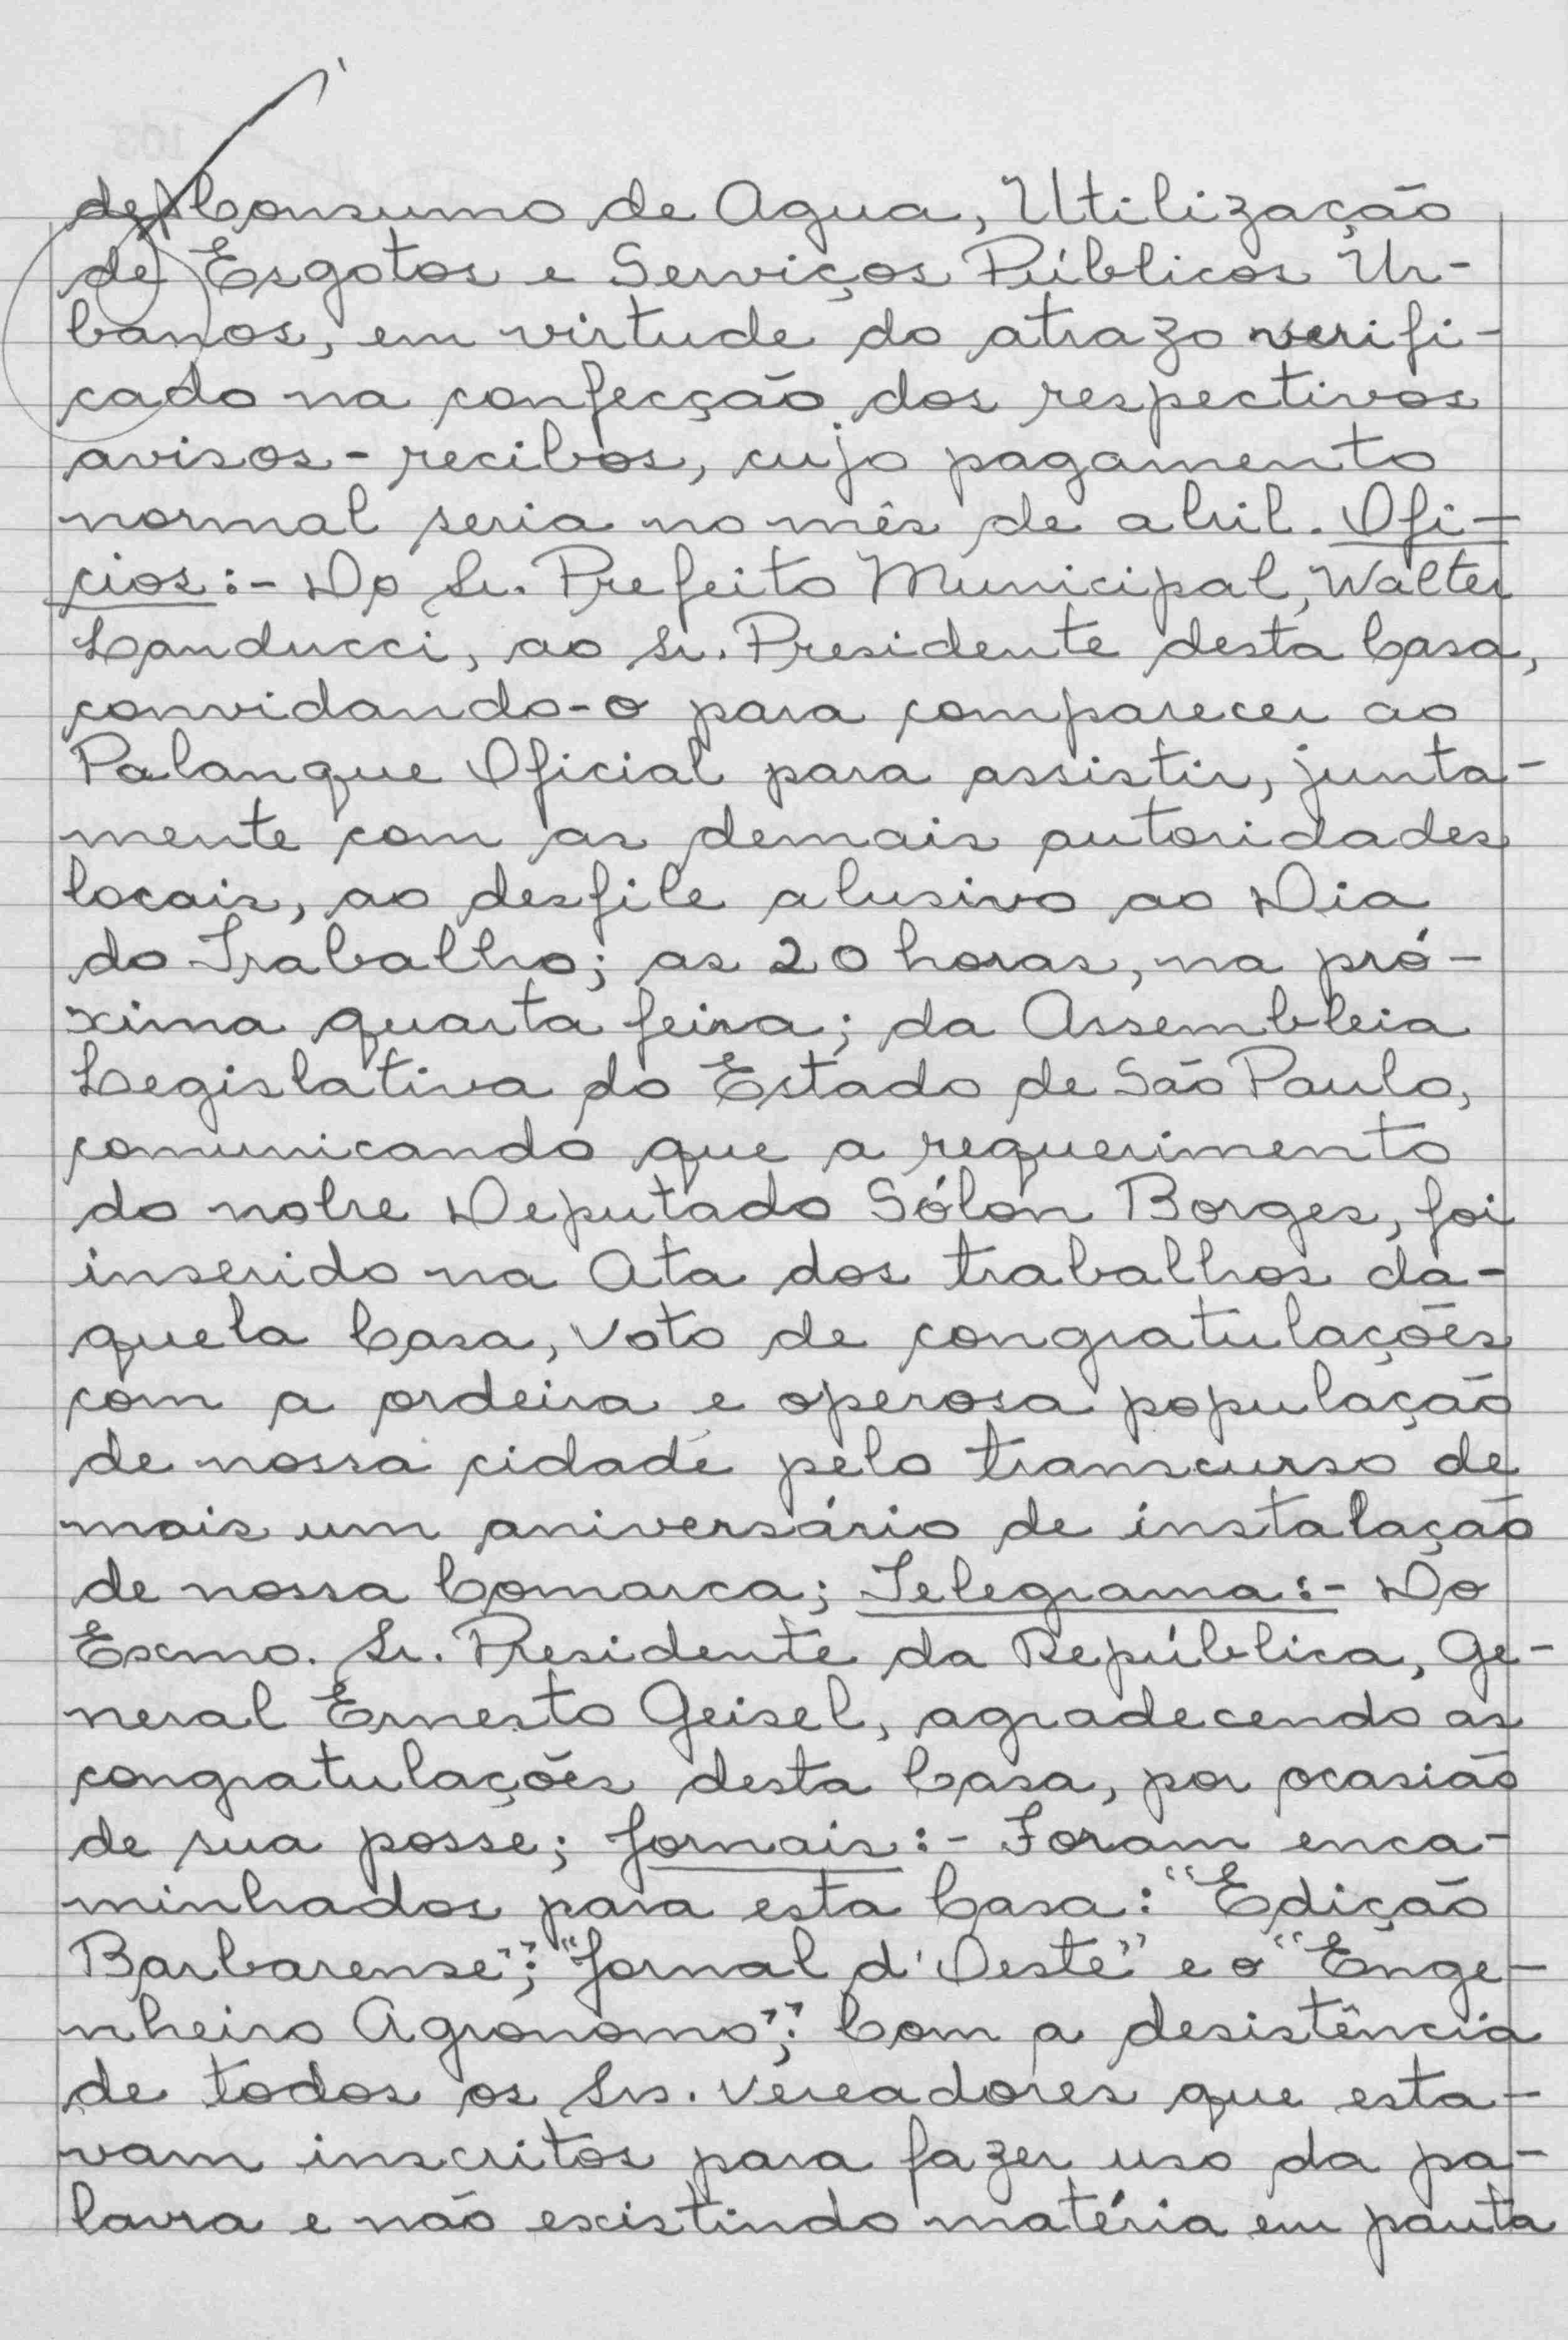 de Consumo de Agua, Utilização
de Esgotos e Serviços Públicos Ur-
banos, em virtude do atrazo verifi-
cado na confecção dos respectivos
avisos-recibos, cujo pagamento
normal seria no mês de abril. Ofi-
cios:- Do Sr. Prefeito Municipal, Walter
Landucci, ao Sr. Presidente desta Casa,
convidando-o para comparecer ao
Palanque Oficial para assistir, junta-
mente com as demais autoridades
locais, ao desfile alusivo ao Dia
do Trabalho; as 20 horas, na pró-
xima quarta feira; da Assembleia
Legislativa do Estado de São Paulo,
comunicando que a requerimento
do nobre Deputado Sólon Borges, foi
inserido na Ata dos trabalhos da-
quela Casa, voto de congratulações
com a ordeira e operosa população
de nossa cidade pelo transcurso de
mais um aniversário de instalação
de nossa Comarca; Telegrama:- Do
Exmo. Sr. Presidente da República, Ge-
neral Ernesto Geisel, agradecendo as
congratulações desta Casa, por ocasião
de sua posse; Jornais:- Foram enca-
minhados para esta Casa: "Edição
Barbarense"; "Jornal d'Oeste" e o "Enge-
nheiro Agronomo"; Com a desistência
de todos os Srs. Vereadores que esta-
vam inscritos para fazer uso da pa-
lavra e não existindo matéria em pauta